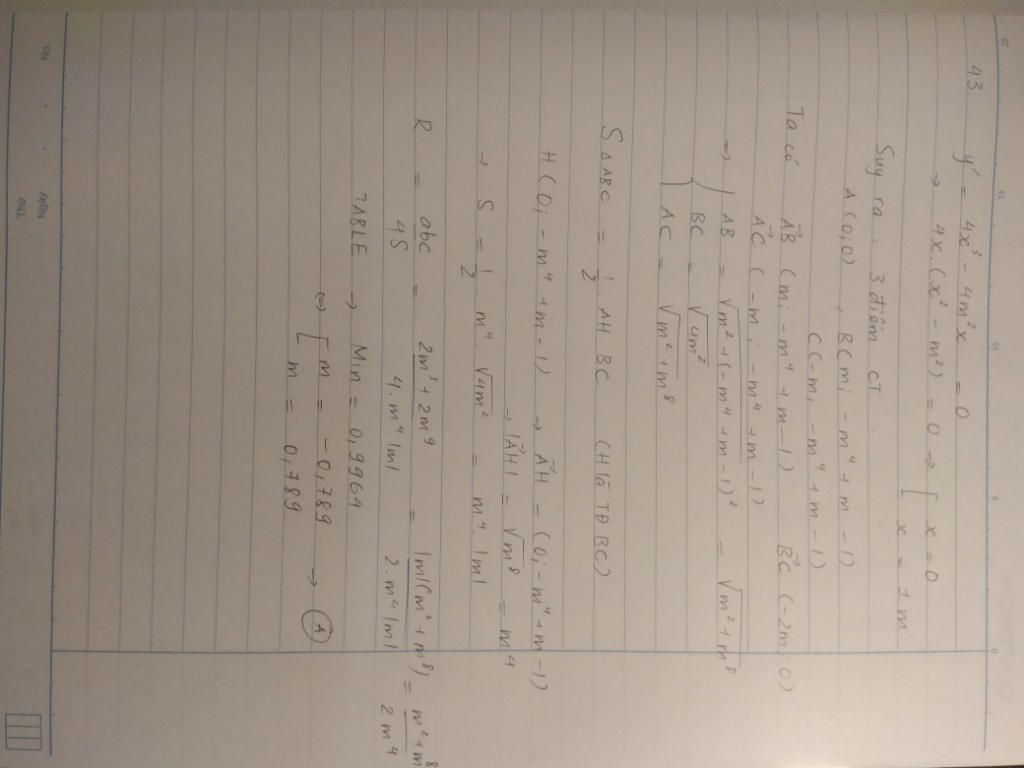 Thứ
Ngày . .
No.
43. y' = 4x³ - 4m²x = 0
→ 4x.(x² - m²) = 0 → [ x = 0
x = ± m
Suy ra : 3 điểm CT
A(0;0) , B(m; -m⁴ + m - 1)
C(-m; -m⁴ + m - 1)
Ta có AB→ (m; -m⁴ + m - 1) BC→ (-2m; 0)
AC→ (-m; -m⁴ + m - 1)
=> { AB = √m² + (-m⁴ + m - 1)² = √m² + m⁸
BC = √4m²
AC = √m² + m⁸
S ΔABC = 1/2 . AH . BC (H là TĐ BC)
H(0; -m⁴ + m - 1) → AH→ = (0; -m⁴ + m - 1)
→ |AH→| = √m⁸ = m⁴
→ S = 1/2 . m⁴ . √4m² = m⁴ . |m|
R = abc/4S = 2m³ + 2m⁹/4.m⁴|m| = |m|(m² + m⁸)/2.m⁴|m| = m² + m⁸/2m⁴
TABLE → Min = 0,9964
<=> [ m = -0,789 → A
m = 0,789